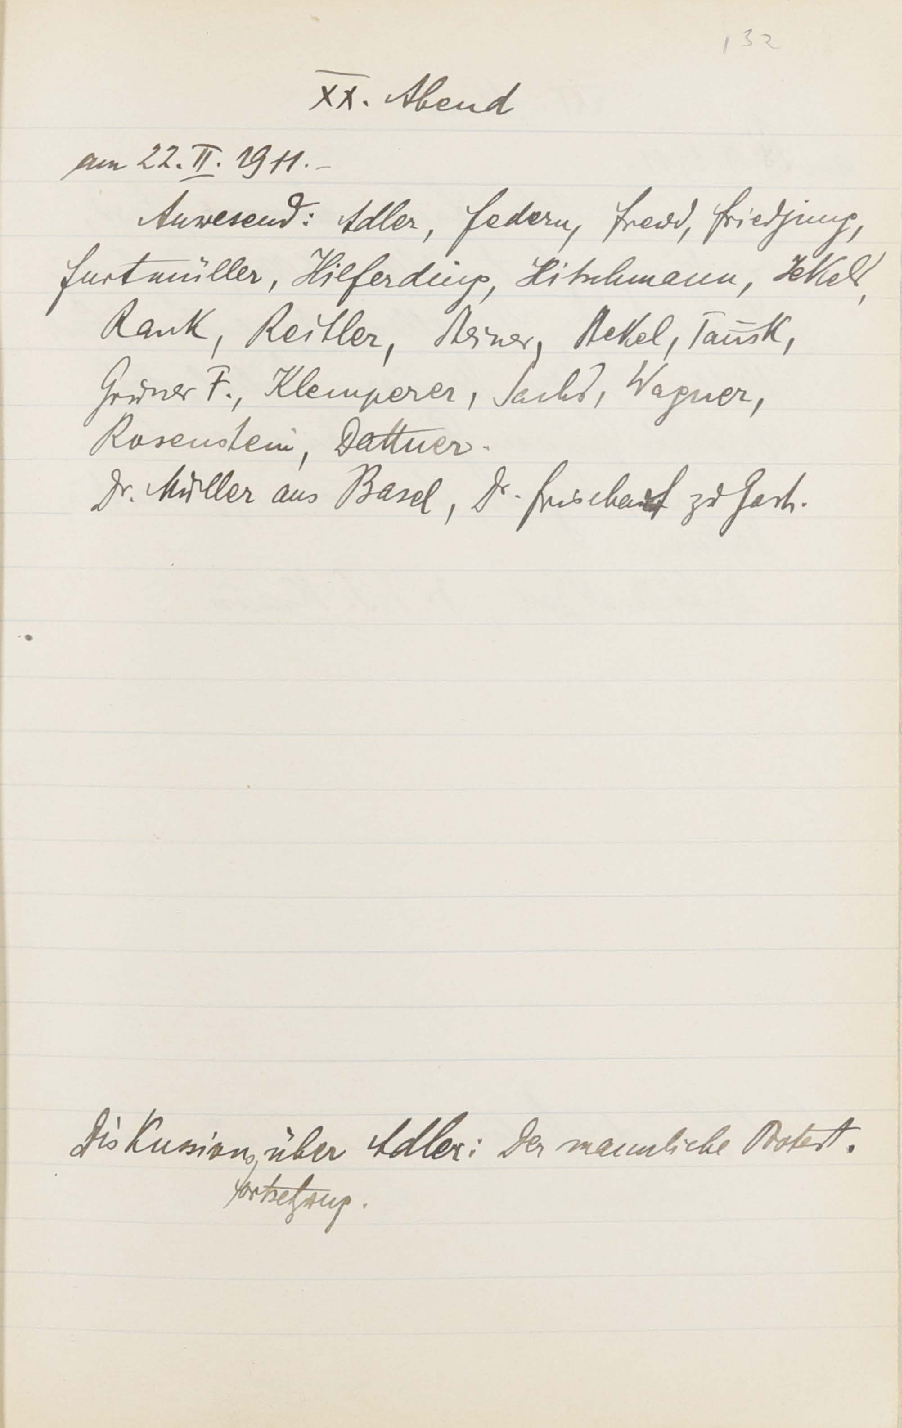 132
XX. Abend
am 22. II. 1911. –
Anwesend: Adler, Federn, Freud, Friedjung,
Furtmüller, Hilferding, Hitschmann, Jekels,
Rank, Reitler, Steiner, Stekel, Tausk,
Grüner F., Klemperer, Sachs, Wagner,
Rosenstein, Dattner.
Dr. Müller aus Basel, Dr. Frischauf zu Gast.
Diskussion über Adler: Der männliche Protest.
Fortsetzung.